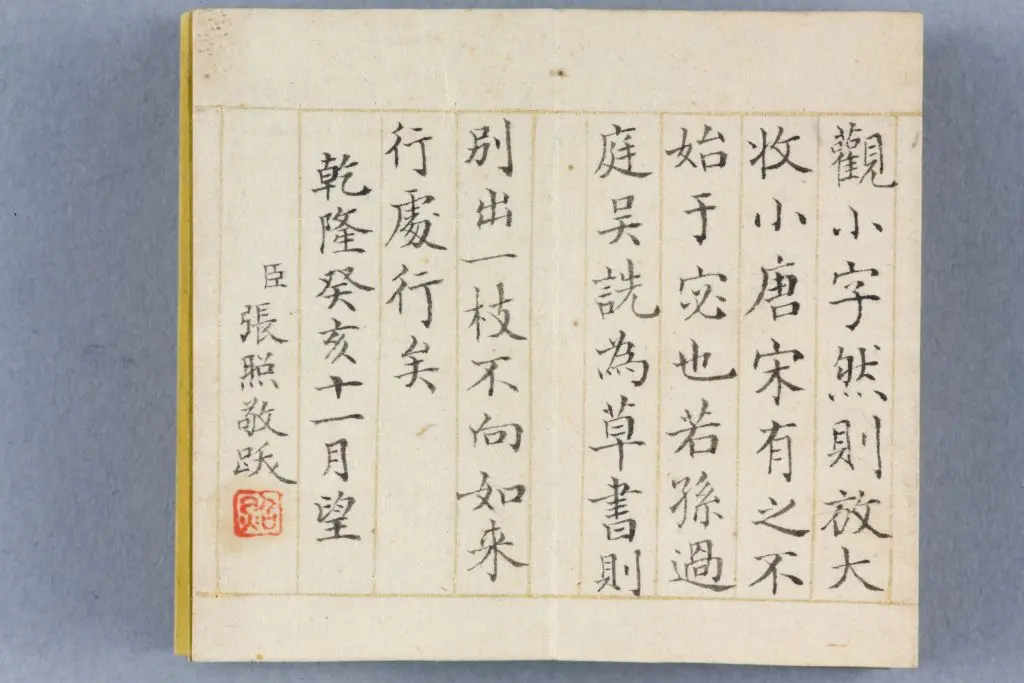 觀小字然則放大
收小唐宋有之不
始于宓也若孫過
庭吴説為草書則
别出一枝不向如来
行處行矣
乾隆癸亥十一月望
臣張照敬跋
照